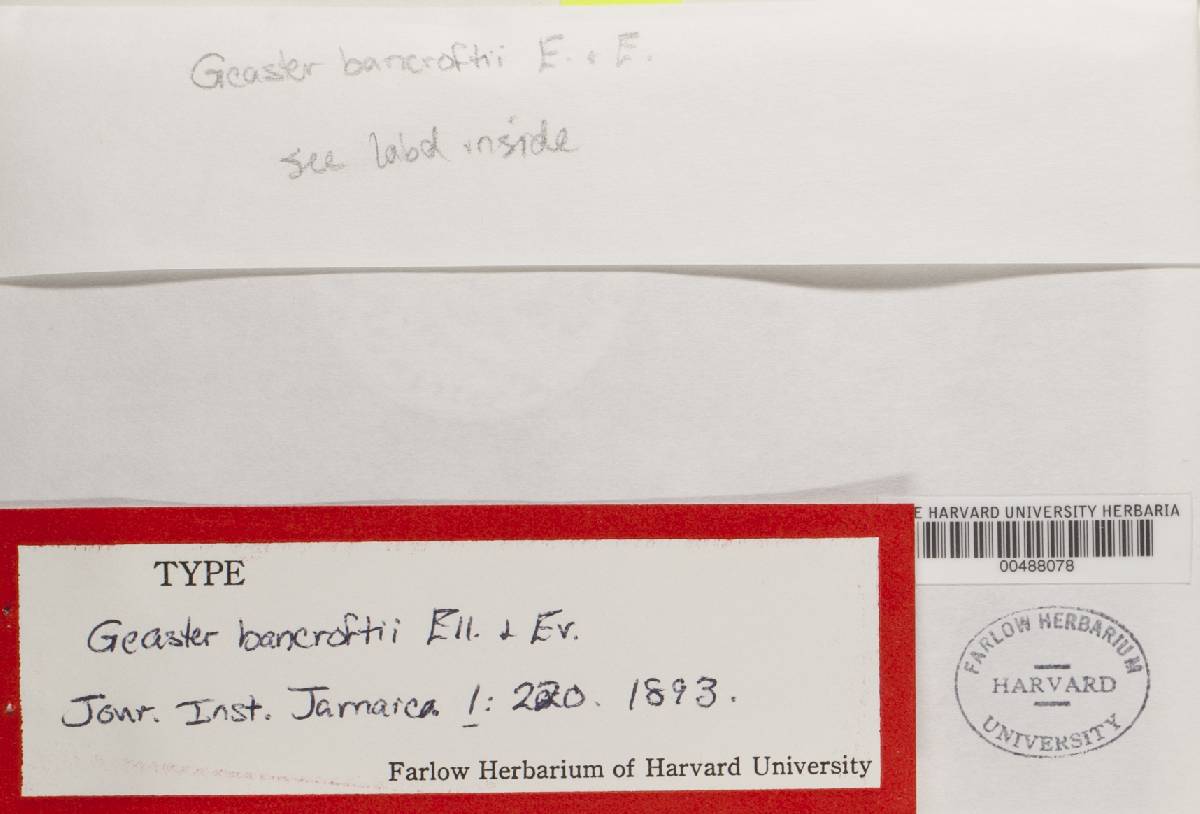 Geaster bancroftii E. & E.
see label inside
E HARVARD UNIVERSITY HERBARIA
00488078
TYPE
Geaster bancroftii Ell. & Ev.
Jour. Inst. Jamaica 1: 220. 1893.
Farlow Herbarium of Harvard University
FARLOW HERBARIUM
HARVARD
UNIVERSITY